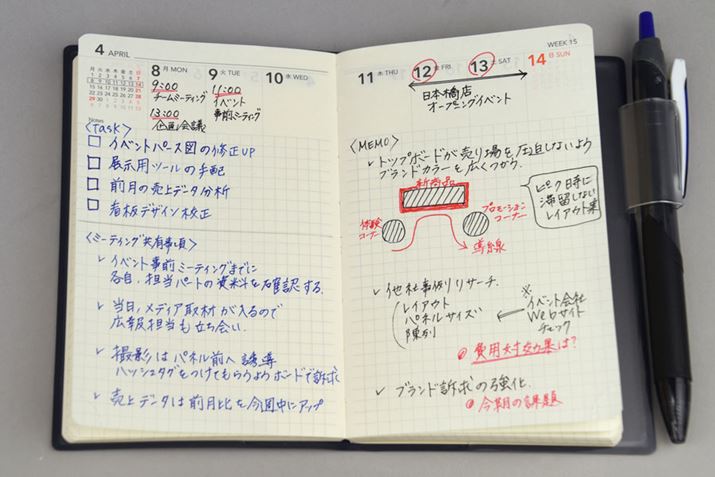 4 APRIL
月 火 水 木 金 土 日
1 2 3 4 5 6 7
8 9 10 11 12 13 14
15 16 17 18 19 20 21
22 23 24 25 26 27 28
29 30
8 月 MON
9:00
チームミーティング
13:00
企画会議
9 火 TUE
11:00
イベント
事前ミーティング
10 水 WED
Notes
〈Task〉
イベントパース図の修正UP
展示用ツールの手配
前月の売上データ分析
看板デザイン校正
〈ミーティング共有事項〉
✓ イベント事前ミーティングまでに
各自、担当パートの資料を確認する.
✓ 当日、メディア取材が入るので
広報担当も立ち会い.
✓ 撮影はパネル前へ誘導
ハッシュタグをつけてもらうようボードで訴求
✓ 売上データは前月比を今週中にアップ
WEEK 15
11 木 THU
12 金 FRI
13 土 SAT
14 日 SUN
日本橋店
オープニングイベント
〈MEMO〉
✓ トップボードが売り場を圧迫しないよう
ブランドカラーを広くつかう.
新商品
体験
コーナー
プロモーション
コーナー
導線
ピーク時に
滞留しない
レイアウト案
✓ 他社事例リサーチ.
レイアウト
パネルサイズ
陳列
※
イベント会社
Webサイト
チェック
費用対効果は?
✓ ブランド訴求の強化.
今期の課題